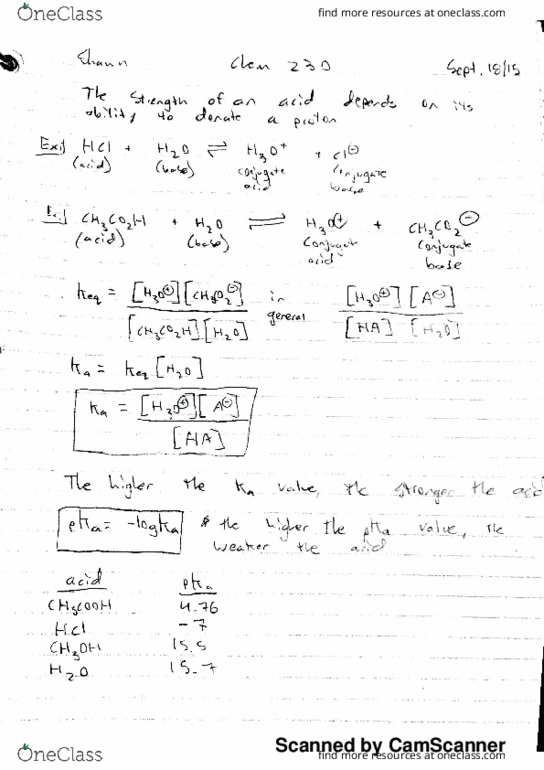 OneClass find more resources at oneclass.com
Shaun Chem 230 Sept. 18/15
The strength of an acid depends on its
ability to donate a proton
Ex:) HCl + H₂O ⇌ H₃O⁺ + Cl⊖
(acid) (base) conjugate acid conjugate base
Ex:) CH₃CO₂H + H₂O ⇌ H₃O⊕ + CH₃CO₂⊖
(acid) (base) (conjugate acid) (conjugate base
Keq = [H₃O⊕][CH₃CO₂⊖] / [CH₃CO₂H][H₂O] in general [H₃O⊕][A⊖] / [HA][H₂O]
Ka = Keq[H₂O]
Ka = [H₃O⊕][A⊖] / [HA]
The higher the Ka value, the stronger the acid
pKa = -logKa * the higher the pKa value, the
weaker the acid
acid pKa
CH₃COOH 4.76
HCl -7
CH₃OH 15.5
H₂O 15.7
Scanned by CamScanner
OneClass find more resources at oneclass.com